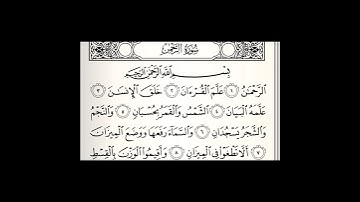 سُورَةُ الرَّحْمَٰن
بِسْمِ اللَّهِ الرَّحْمَٰنِ الرَّحِيمِ
الرَّحْمَٰنُ ١ عَلَّمَ الْقُرْءَانَ ٢ خَلَقَ الْإِنسَٰنَ ٣
عَلَّمَهُ الْبَيَانَ ٤ الشَّمْسُ وَالْقَمَرُ بِحُسْبَانٍ ٥ وَالنَّجْمُ
وَالشَّجَرُ يَسْجُدَانِ ٦ وَالسَّمَاءَ رَفَعَهَا وَوَضَعَ الْمِيزَانَ
٧ أَلَّا تَطْغَوْا فِي الْمِيزَانِ ٨ وَأَقِيمُوا الْوَزْنَ بِالْقِسْطِ